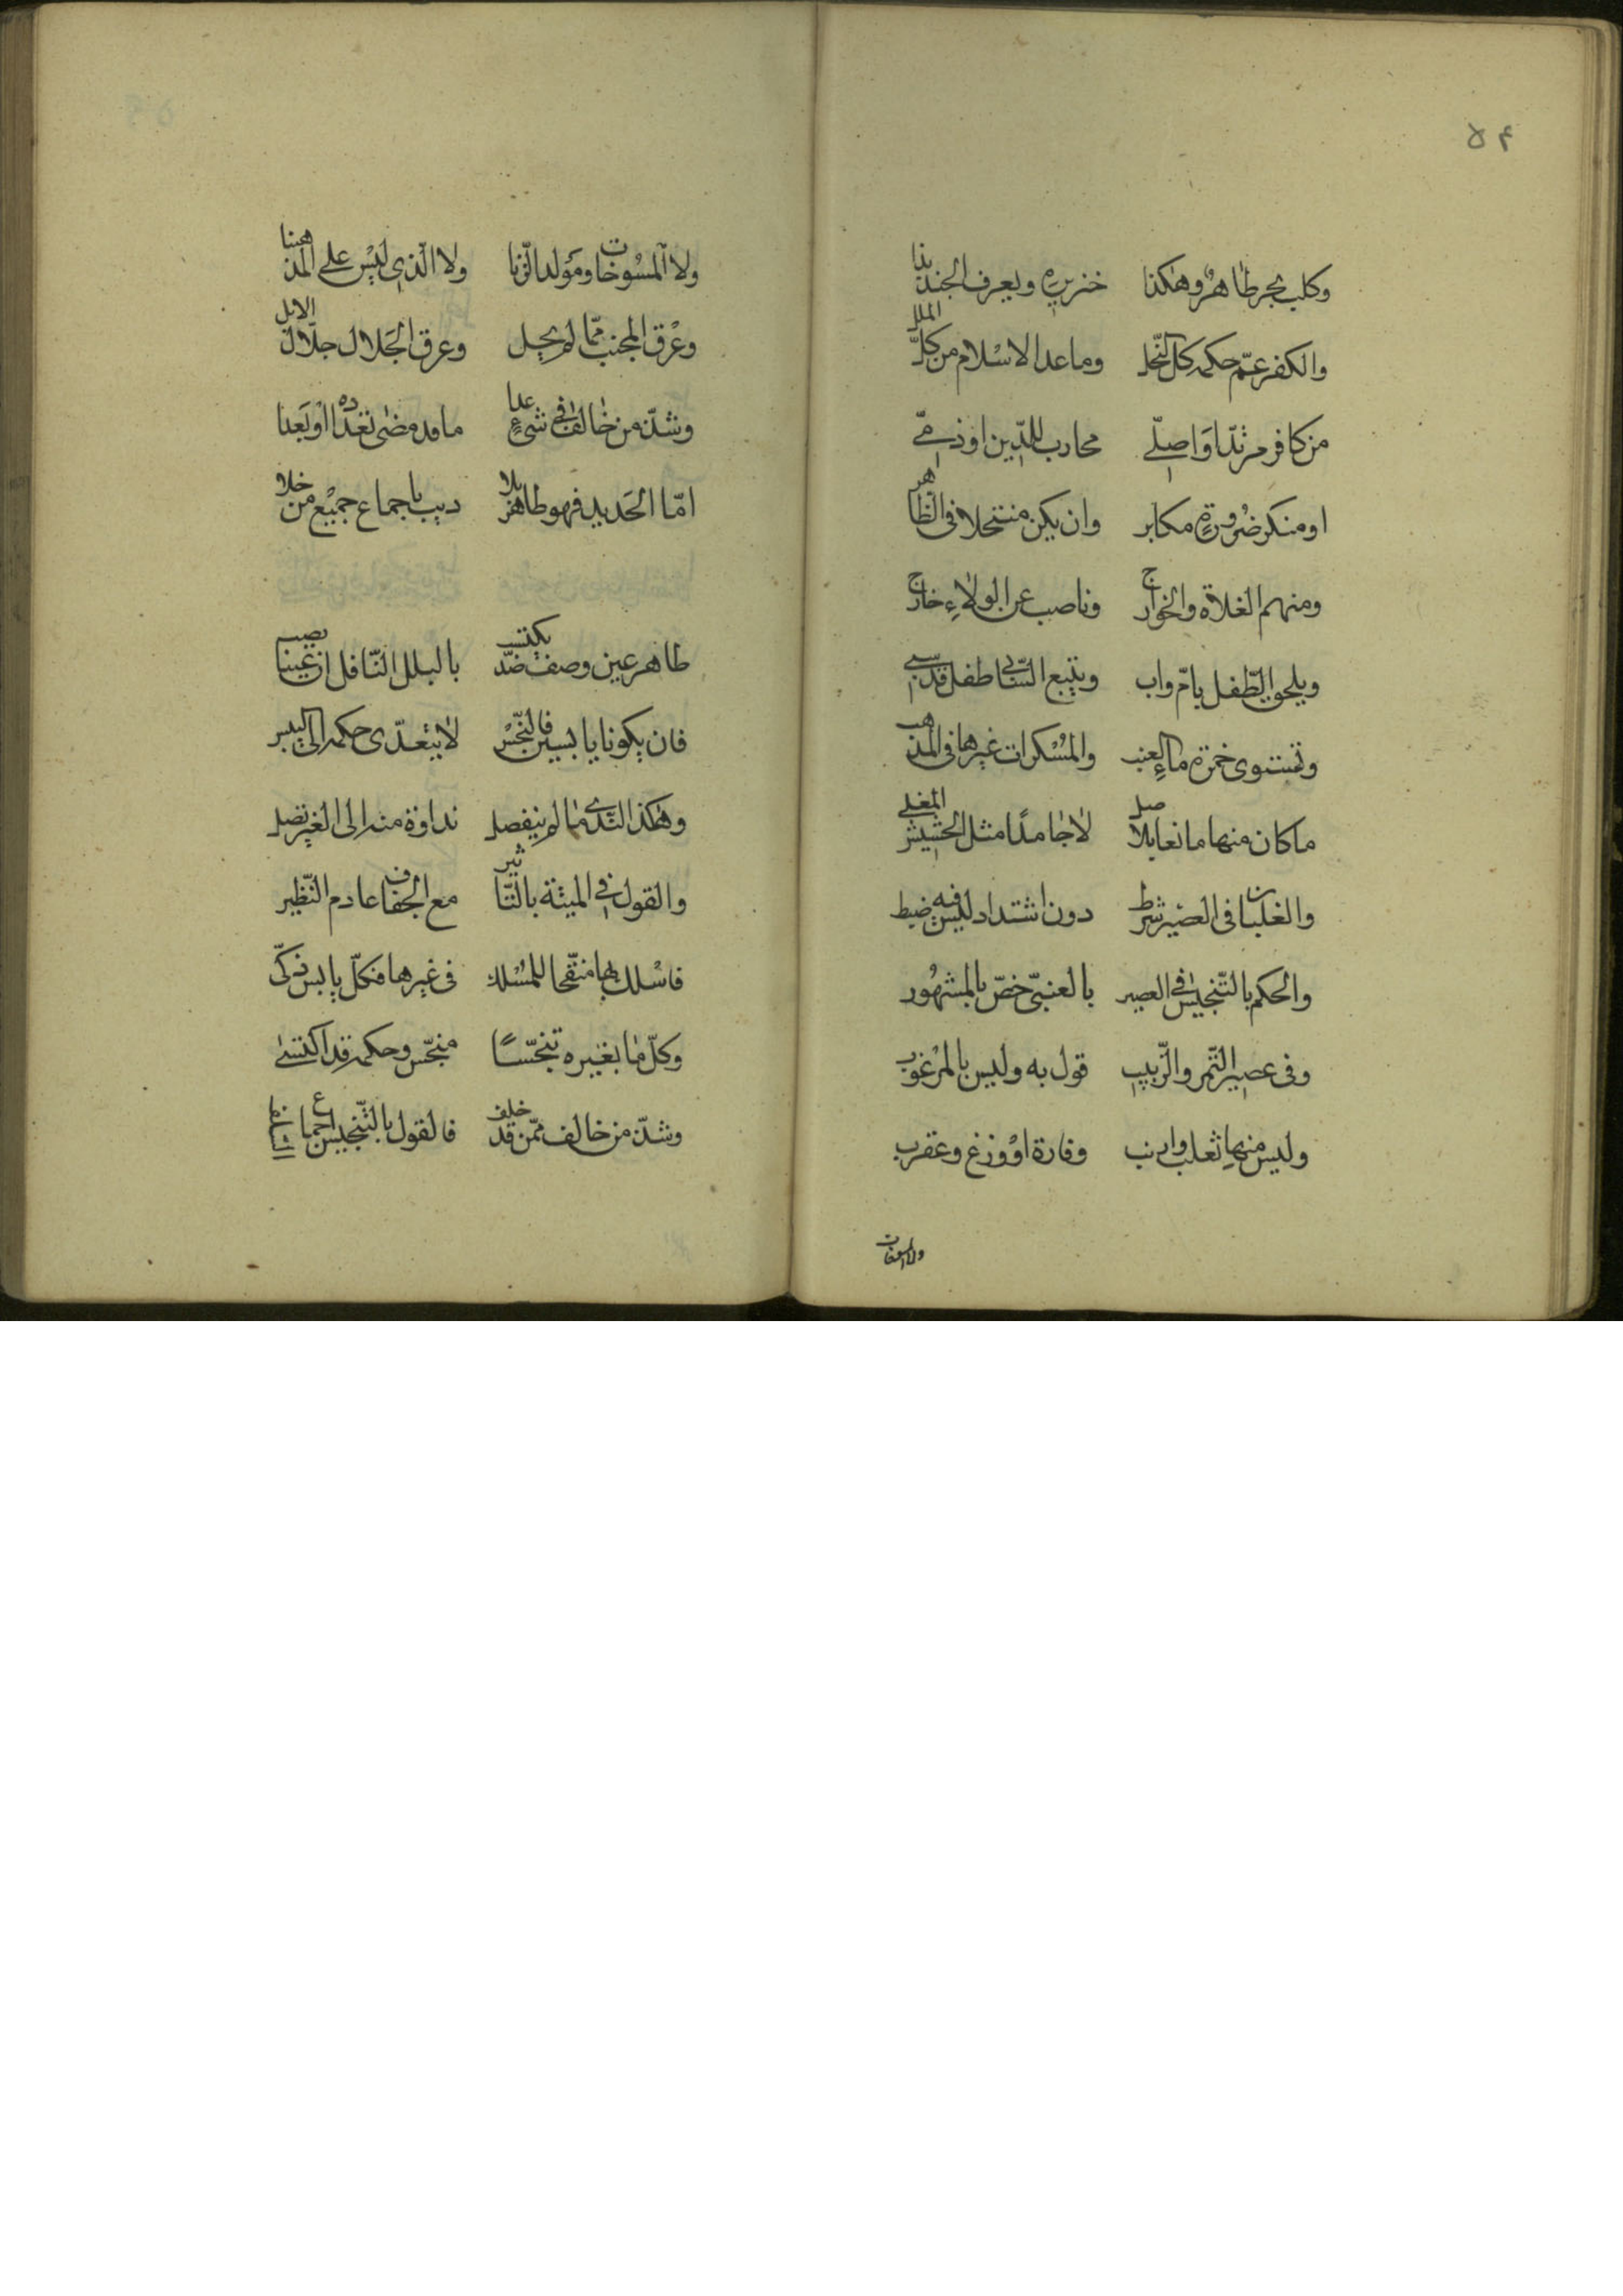 ۵۴
وكلب بحر طاهر وهكذا خنزيره ويعرف الجند بذا
والكفر عمّ حكمه كل النّحل وما عدا الاسلام من كلّ الملل
من كافر مرتدّ اواصلے محارب للدّين او ذمّے
او منكر ضرورة مكابر وان يكن منتحلا فى الظّاهر
ومنهم الغلاة والخوارج وناصب عن الولاء خارج
ويلحق الطّفل بامّ واب ويتبع السّابى طفل قد سبے
وتستوى خمرة ماء العنب والمسكرات غيرها فى المذهب
ما كان منها مائعا بلاصل لا جامدًا مثل الحشيش المغلے
والغليان فى العصير شرط دون اشتداد ليس فيه ضبط
والحكم بالتّنجيس فے العصير بالعنبىّ خصّ بالمشهور
وفى عصير التّمر والزّبيب قول به وليس بالمرغوب
وليس منها ثعلب وارنب وفارة او وزغ وعقرب
ولا المسوخات
ولا المسوخات ومولد الزّنا ولا الّذى ليس علے المذهبنا
وعرق المجنب ممّا لم يحل وعرق الجلال جلّال الابل
وشذّ من خالف فے شئ عدا ما قد مضى تعداده او بعدا
امّا الحديد فهو طاهر بلا ريب باجماع جميع من خلا
طاهر عين وصف ضدّ يكتسب بالبلل النّاقل ان عينا يصب
فان يكونا يابسين فالنّجس لا يتعدّى حكمه الى اليبس
وهكذا النّدے ما لم ينفصل نداوة منه الى الغير تصل
والقول فے الميتة بالتّاثير مع الجفاف عادم النّظير
فاسلك بها منقّحا للمسلك فى غيرها فكلّ يابس زكّى
وكلّ ما بغيره تنجّسًا منجّس وحكمه قد اكتسے
وشذّ من خالف ممّن قد خلف فالقول بالتّنجيس اجماع